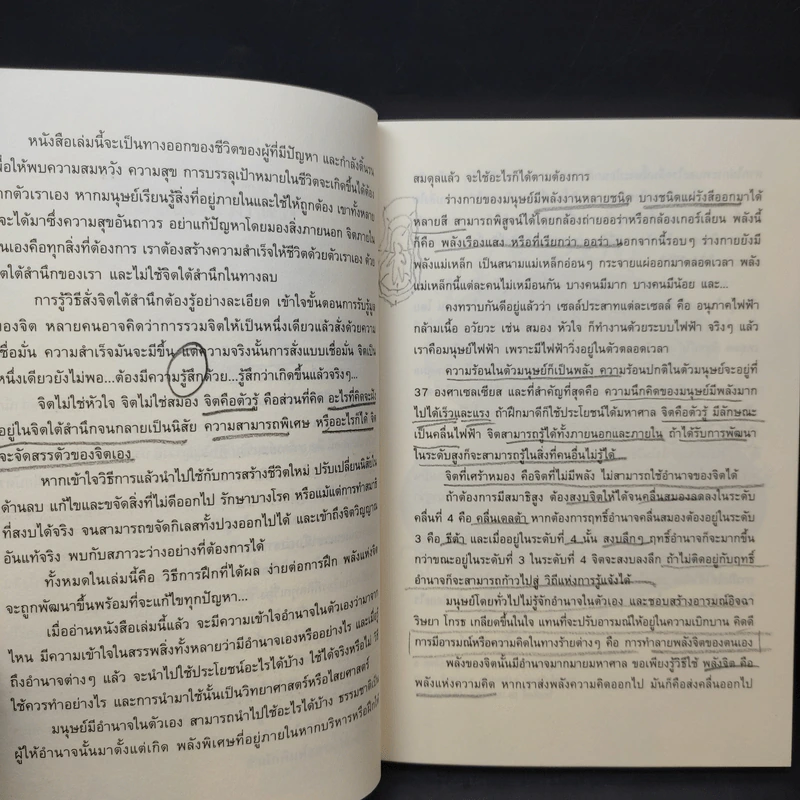 หนังสือเล่มนี้จะเป็นทางออกของชีวิตของผู้ที่มีปัญหา และกำลังดิ้นรน
เพื่อให้พบความสมหวัง ความสุข การบรรลุเป้าหมายในชีวิตจะเกิดขึ้นได้ต้อง
จากตัวเราเอง หากมนุษย์เรียนรู้สิ่งที่อยู่ภายในและใช้ให้ถูกต้อง เขาทั้งหลาย
จะได้มาซึ่งความสุขอันถาวร อย่าแก้ปัญหาโดยมองสิ่งภายนอก จิตภายใน
นเองคือทุกสิ่งที่ต้องการ เราต้องสร้างความสำเร็จให้ชีวิตด้วยตัวเราเอง ด้วย
จิตใต้สำนึกของเรา และไม่ใช้จิตใต้สำนึกในทางลบ
การรู้วิธีสั่งจิตใต้สำนึกต้องรู้อย่างละเอียด เข้าใจขั้นตอนการรับรู้มูล
ของจิต หลายคนอาจคิดว่าการรวมจิตให้เป็นหนึ่งเดียวแล้วสั่งด้วยความ
เชื่อมั่น ความสำเร็จมันจะมีขึ้น แต่ความจริงนั้นการสั่งแบบเชื่อมั่น จิตเป็น
หนึ่งเดียวยังไม่พอ...ต้องมีความรู้สึกด้วย...รู้สึกว่าเกิดขึ้นแล้วจริงๆ...
จิตไม่ใช่หัวใจ จิตไม่ใช่สมอง จิตคือตัวรู้ คือส่วนที่คิด อะไรที่คิดจะฝัง
อยู่ในจิตใต้สำนึกจนกลายเป็นนิสัย ความสามารถพิเศษ หรืออะไรก็ได้ จิต
จะจัดสรรตัวของจิตเอง
หากเข้าใจวิธีการแล้วนำไปใช้กับการสร้างชีวิตใหม่ ปรับเปลี่ยนนิสัยใน
ด้านลบ แก้ไขและขจัดสิ่งที่ไม่ดีออกไป รักษาบางโรค หรือแม้แต่การทำสมาธิ
ที่สงบได้จริง จนสามารถขจัดกิเลสทั้งปวงออกไปได้ และเข้าถึงจิตวิญญาณ
อันแท้จริง พบกับสภาวะว่างอย่างที่ต้องการได้
ทั้งหมดในเล่มนี้คือ วิธีการฝึกที่ได้ผล ง่ายต่อการฝึก พลังแห่งจิต
จะถูกพัฒนาขึ้นพร้อมที่จะแก้ไขทุกปัญหา...
เมื่ออ่านหนังสือเล่มนี้แล้ว จะมีความเข้าใจอำนาจในตัวเองว่ามาจาก
ไหน มีความเข้าใจในสรรพสิ่งทั้งหลายว่ามีอำนาจเองหรืออย่างไร และเมื่อรู้
ถึงอำนาจต่างๆ แล้ว จะนำไปใช้ประโยชน์อะไรได้บ้าง ใช้ได้จริงหรือไม่ วิธี
ใช้ควรทำอย่างไร และการนำมาใช้นั้นเป็นวิทยาศาสตร์หรือไสยศาสตร์
มนุษย์มีอำนาจในตัวเอง สามารถนำไปใช้อะไรได้บ้าง ธรรมชาติเป็น
ผู้ให้อำนาจนั้นมาตั้งแต่เกิด พลังพิเศษที่อยู่ภายในหากบริหารหรือฝึกให้
สมดุลแล้ว จะใช้อะไรก็ได้ตามต้องการ
ร่างกายของมนุษย์มีพลังงานหลายชนิด บางชนิดแผ่รังสีออกมาได้
หลายสี สามารถพิสูจน์ได้โดยกล้องถ่ายออร่าหรือกล้องเกอร์เลี่ยน พลังนี้
ก็คือ พลังเรืองแสง หรือที่เรียกว่า ออร่า นอกจากนี้รอบๆ ร่างกายยังมี
พลังแม่เหล็ก เป็นสนามแม่เหล็กอ่อนๆ กระจายแผ่ออกมาตลอดเวลา พลัง
แม่เหล็กนี้แต่ละคนไม่เหมือนกัน บางคนมีมาก บางคนมีน้อย และ...
คงทราบกันดีอยู่แล้วว่า เซลล์ประสาทแต่ละเซลล์ คือ อนุภาคไฟฟ้า
กล้ามเนื้อ อวัยวะ เช่น สมอง หัวใจ ก็ทำงานด้วยระบบไฟฟ้า จริงๆ แล้ว
เราคือมนุษย์ไฟฟ้า เพราะมีไฟฟ้าวิ่งอยู่ในตัวตลอดเวลา
ความร้อนในตัวมนุษย์ก็เป็นพลัง ความร้อนปกติในตัวมนุษย์จะอยู่ที่
37 องศาเซลเซียส และที่สำคัญที่สุดคือ ความนึกคิดของมนุษย์มีพลังมาก
ไปได้เร็วและแรง ถ้าฝึกมาดีก็ใช้ประโยชน์ได้มหาศาล จิตคือตัวรู้ มีลักษณะ
เป็นคลื่นไฟฟ้า จิตสามารถรู้ได้ทั้งภายนอกและภายใน ถ้าได้รับการพัฒนา
ในระดับสูงก็จะสามารถรู้ในสิ่งที่คนอื่นไม่รู้ได้
จิตที่เศร้าหมอง คือจิตที่ไม่มีพลัง ไม่สามารถใช้อำนาจของจิตได้
ถ้าต้องการมีสมาธิสูง ต้องสงบจิตให้ได้จนคลื่นสมองลดลงในระดับ
คลื่นที่ 4 คือ คลื่นเดลต้า หากต้องการฤทธิ์อำนาจคลื่นสมองต้องอยู่ในระดับ
3 คือ ธีต้า และเมื่ออยู่ในระดับที่ 4 นั้น สงบลึกๆ ฤทธิ์อำนาจก็จะมากขึ้น
กว่าขณะอยู่ในระดับที่ 3 ในระดับที่ 4 จิตจะสงบลงลึก ถ้าไม่ติดอยู่กับฤทธิ์
อำนาจก็จะสามารถก้าวไปสู่ วิถีแห่งการรู้แจ้งได้
มนุษย์โดยทั่วไปไม่รู้จักอำนาจในตัวเอง และชอบสร้างอารมณ์อิจฉา
ริษยา โกรธ เกลียดขึ้นในใจ แทนที่จะปรับอารมณ์ให้อยู่ในความเบิกบาน คิดดี
การมีอารมณ์หรือความคิดในทางร้ายต่างๆ คือ การทำลายพลังจิตของตนเอง
พลังของจิตนั้นมีอำนาจมากมายมหาศาล ขอเพียงรู้วิธีใช้ พลังจิต คือ
พลังแห่งความคิด หากเราส่งพลังความคิดออกไป มันก็คือส่งคลื่นออกไป